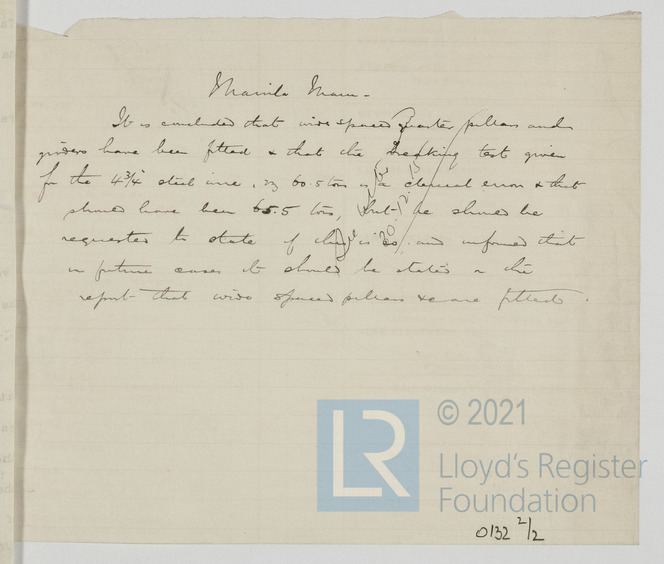 Manila Maru -
It is concluded that wide spaced quarter pillars and
girders have been fitted & that the breaking test given
for the 4 3/4 steel wire, viz 60.5 tons is a clerical error & that
should have been 65.5 tons, but he should be
requested to state if this is so, and informed that
in future cases it should be stated in the
report that wide spaced pillars &c are fitted.
20.12.15
LR
© 2021
Lloyd's Register
Foundation
0132 2/2